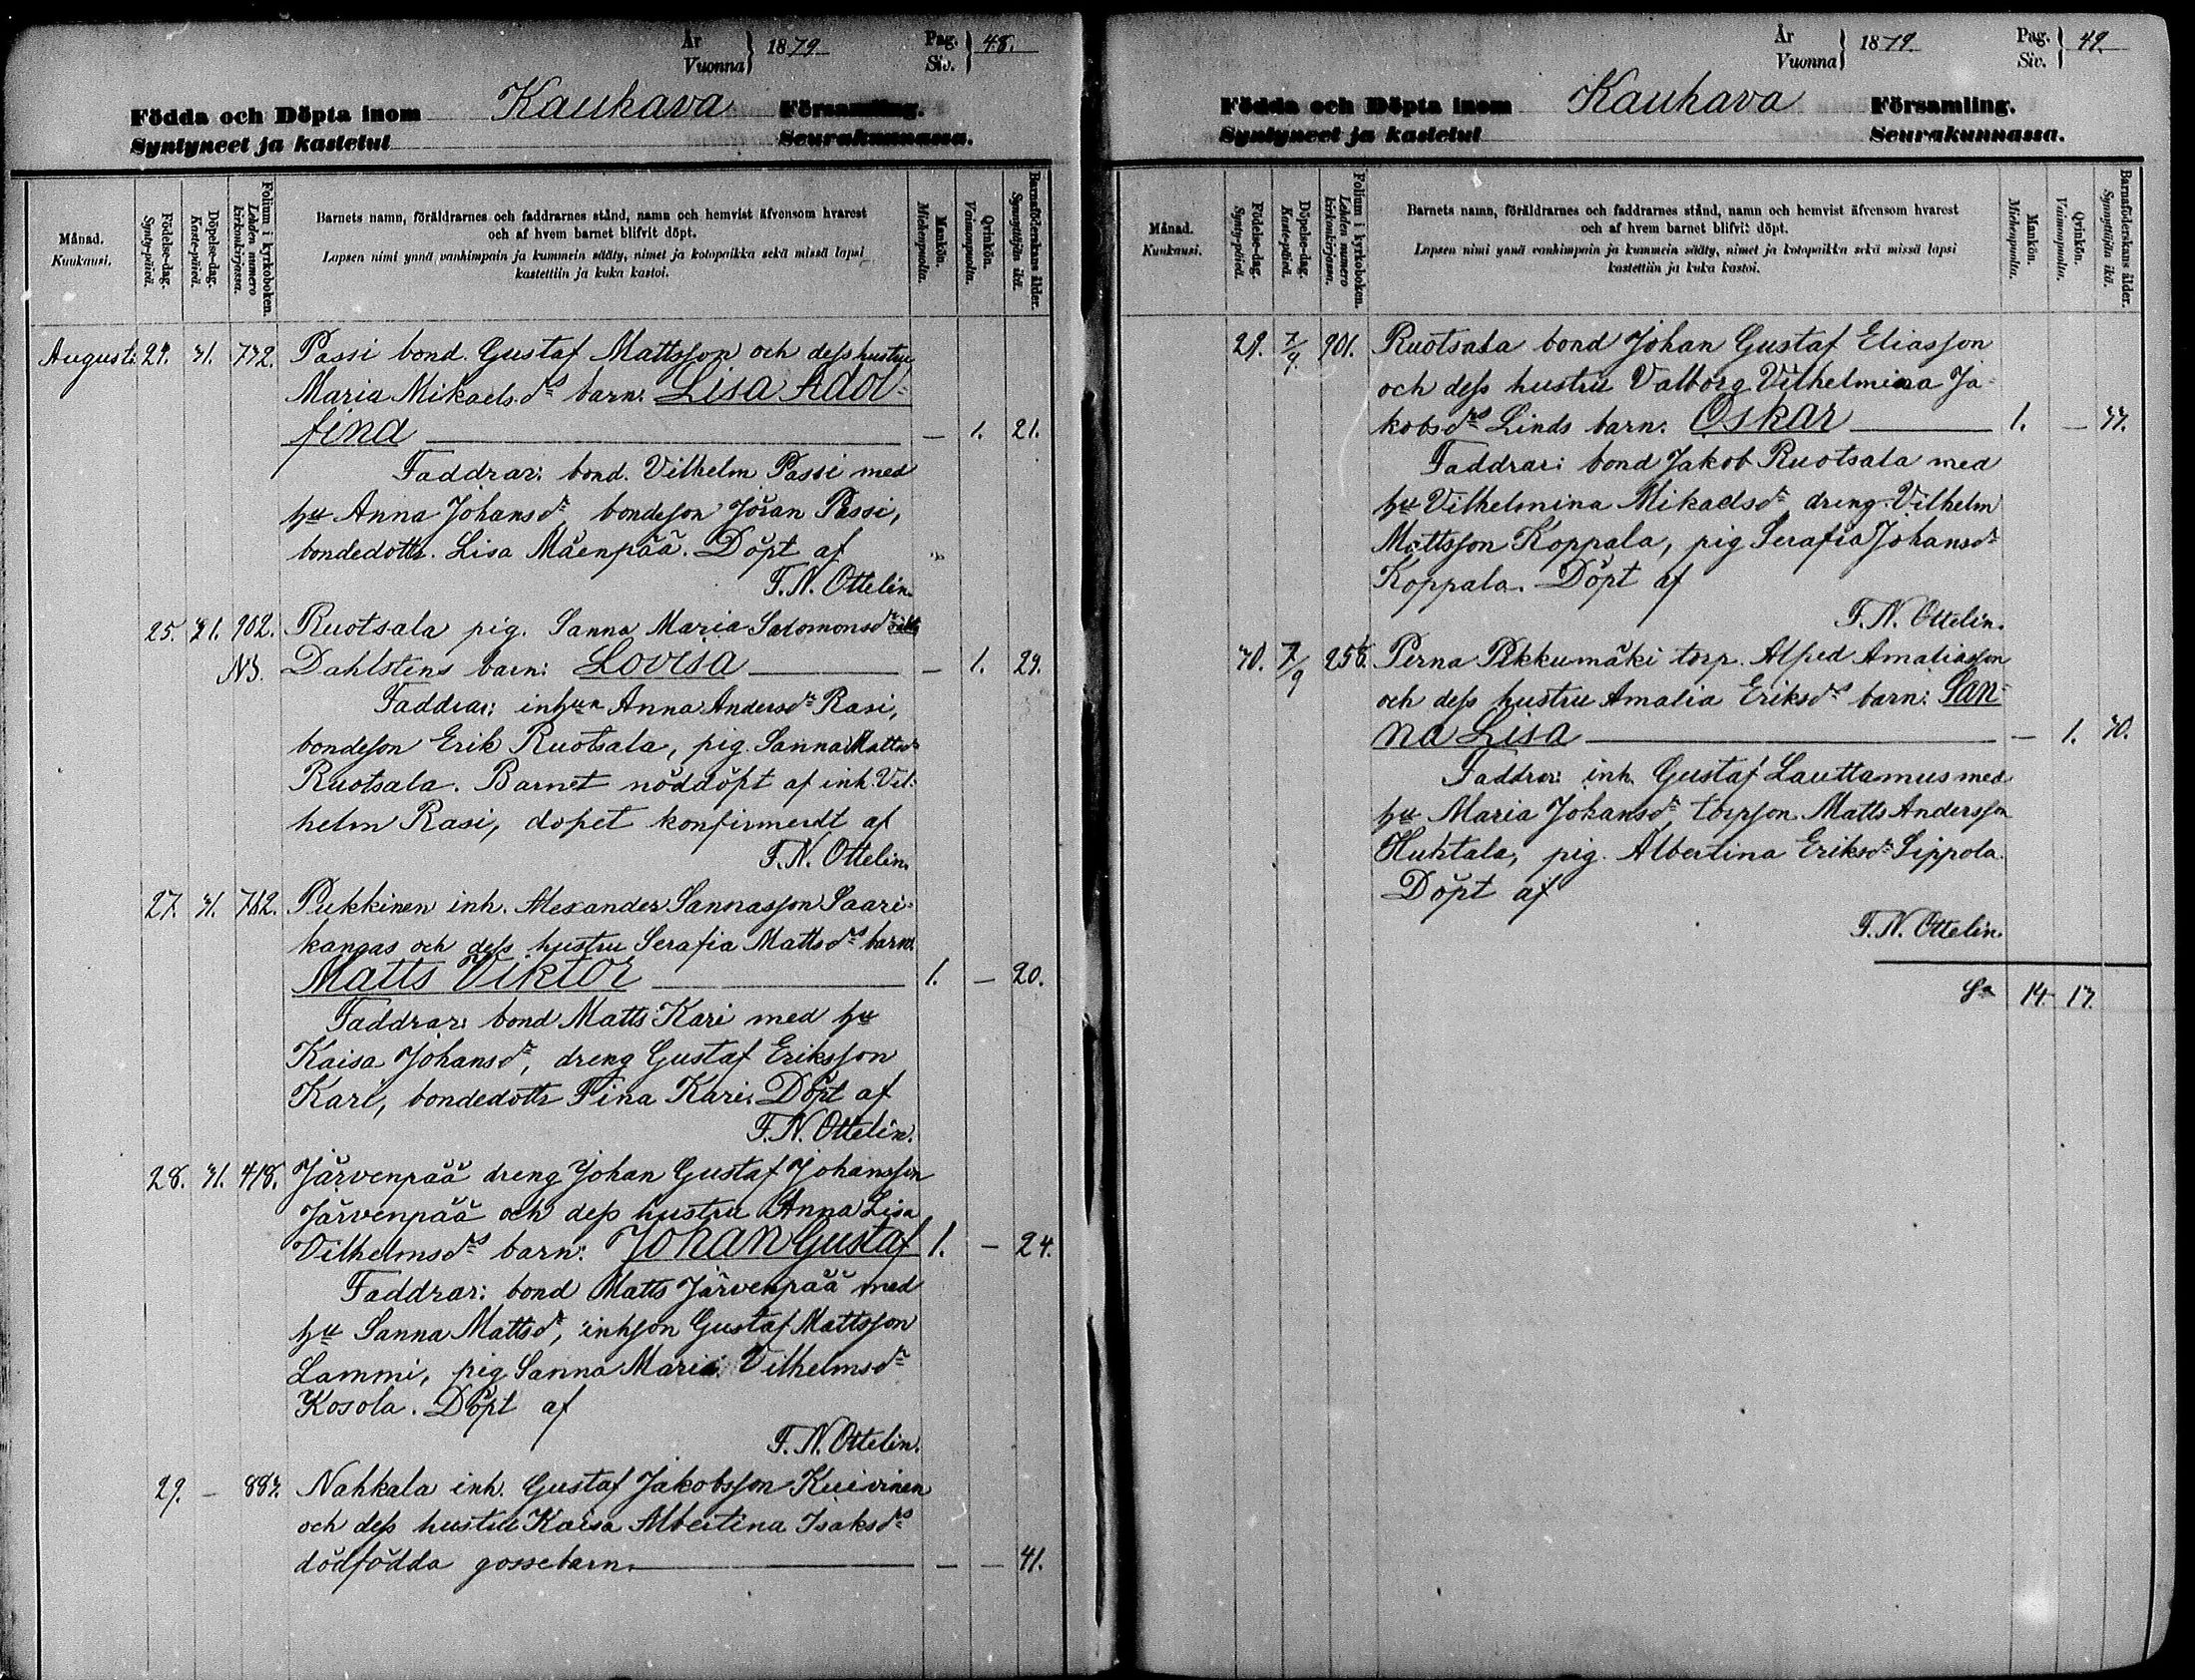 År
Vuonna } 1879 Pag.
Siv. } 48.
Födda och Döpta inom Kauhava Församling.
Syntyneet ja kastetut Seurakunnassa.
Månad.
Kuukausi.
Födelse-dag.
Synty-päivä.
Döpelse-dag.
Kaste-päivä.
Folium i kyrkoboken.
Lehden numero
kirkonkirjassa.
Barnets namn, föräldrarnes och faddrarnes stånd, namn och hemvist äfvensom hvarest
och af hvem barnet blifvit döpt.
Lapsen nimi ynnä vanhimpain ja kummein sääty, nimet ja kotopaikka sekä missä lapsi
kastettiin ja kuka kastoi.
Mankön.
Miehenpuolta.
Qvinkön.
Vaimonpuolta.
Barnaföderskans ålder.
Synnyttäjän ikä.
Augusti 29. 31. 732. Passi bond. Gustaf Mattsson och dess hustru
Maria Mikaelsdrs barn: Lisa Adol=
fina — 1. 21.
Faddrar: bond. Vilhelm Passi med
hu Anna Johansdr, bondeson Jöran Passi,
bondedottr. Lisa Mäenpää. Döpt af
F. N. Ottelin.
25. 31. 902. Ruotsala pig. Sanna Maria Salomonsdr
NB. Dahlstens barn: Lovisa — 1. 29.
Faddrar: inhuan Anna Andersdr Rasi,
bondeson Erik Ruotsala, pig. Sanna Mattsdr
Ruotsala. Barnet nöddöpt af inh. Vil=
helm Rasi, dopet konfirmerdt af
F. N. Ottelin.
27. 31. 782. Pukkinen inh. Alexander Sannasson Saari=
kangas och dess hustru Serafia Mattsdrs barn:
Matts Viktor 1. — 20.
Faddrar: bond Matts Kari med hu
Kaisa Johansdr, dreng Gustaf Eriksson
Kari, bondedottr Fina Kari. Döpt af
F. N. Ottelin.
28. 31. 418. Järvenpää dreng Johan Gustaf Johansson
Järvenpää och dess hustru Anna Lisa
Vilhelmsdrs barn: Johan Gustaf 1. — 24.
Faddrar: bond Matts Järvenpää med
hu Sanna Mattsdr, inhson Gustaf Mattsson
Lammi, pig Sanna Maria Vilhelmsdr
Kosola. Döpt af
F. N. Ottelin.
29. — 883. Nahkala inh. Gustaf Jakobsson Kuivinen
och dess hustru Kaisa Albertina Isaksdrs
dödfödda gossebarn. — — 41.
År
Vuonna } 1879. Pag.
Siv. } 49.
Födda och Döpta inom Kauhava Församling.
Syntyneet ja kastetut Seurakunnassa.
Månad.
Kuukausi.
Födelse-dag.
Synty-päivä.
Döpelse-dag.
Kaste-päivä.
Folium i kyrkoboken.
Lehden numero
kirkonkirjassa.
Barnets namn, föräldrarnes och faddrarnes stånd, namn och hemvist äfvensom hvarest
och af hvem barnet blifvit döpt.
Lapsen nimi ynnä vanhimpain ja kummein sääty, nimet ja kotopaikka sekä missä lapsi
kastettiin ja kuka kastoi.
Mankön.
Miehenpuolta.
Qvinkön.
Vaimonpuolta.
Barnaföderskans ålder.
Synnyttäjän ikä.
29. 7/9. 901. Ruotsala bond Johan Gustaf Eliasson
och dess hustru Valborg Vilhelmina Ja=
kobsdrs Linds barn: Oskar 1. — 33.
Faddrar: bond Jakob Ruotsala med
hu Vilhelmina Mikaelsdr, dreng. Vilhelm
Mattsson Koppala, pig Serafia Johansdr
Koppala. Döpt af
F. N. Ottelin.
30. 7/9 256. Perna Pikkumäki torp. Alfred Amaliasson
och dess hustru Amalia Eriksdrs barn: San=
na Lisa — 1. 30.
Faddrar: inh. Gustaf Lauttamus med
hu Maria Johansdr torpson Matts Andersson
Huhtala, pig. Albertina Eriksdr Sippola.
Döpt af
F. N. Ottelin.
Sa 14. 13.